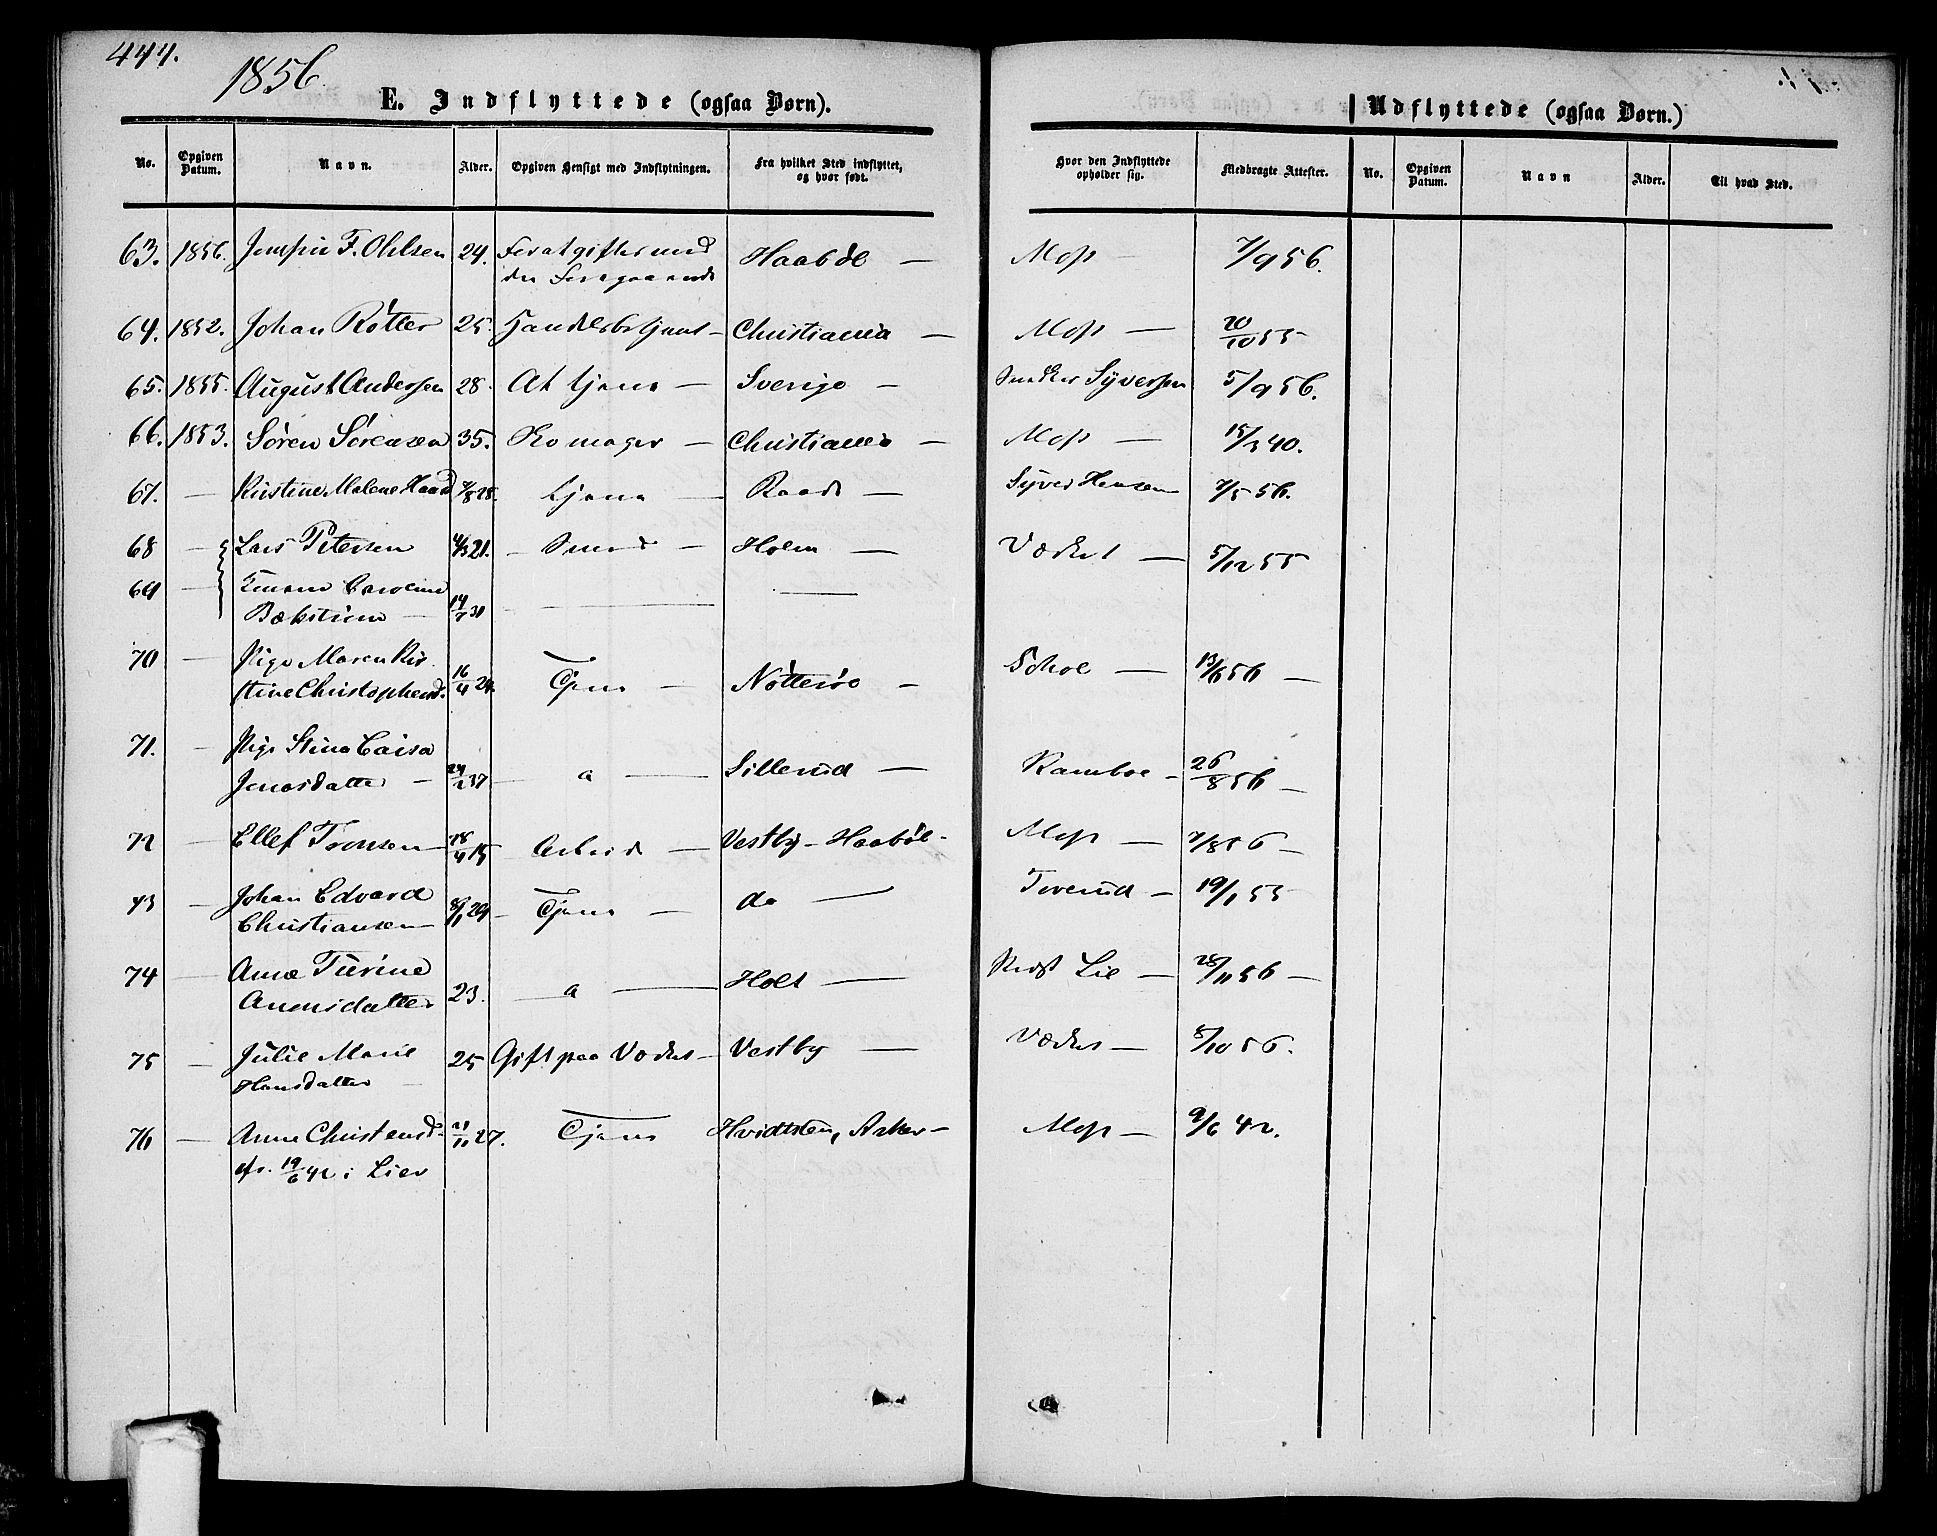 444.
1856.
E. Indflyttede (ogsaa Børn).
Udflyttede (ogsaa Børn.)
No. Opgiven Datum. Navn. Alder. Opgiven Hensigt med Indflytningen. Fra hvilket Sted indflyttet, og hvor født. Hvor den Indflyttede opholder sig. Medbragte Attester. No. Opgiven Datum. Navn Alder. Til hvad Sted.
63. 1856. F. Ohlsen 24. Haabøl — Moss — 7/9 56.
den Foregaaende
64. 1852. Johan Røtter 25. Handelsbetjent — Christiania — Moss — 20/10 55
65. 1855. August Andersen 28. At tjene — Sverige — Snedker Syversen 5/9 56.
66. 1853. Søren Sørensen 35. Skomager — Christiania — Moss — 15/3 40.
67. — Kristine Malene 7/8 28. tjene — Raade — Syver Hansen 7/5 56.
68 — Lars Petersen 4/3 21. — Smed — Holm — Værket — 5/12 55
69 — Caroline
Bækstrøm — 14/7 31 — —
70 — Pige Maren Kir
stine Christophersd. 16/4 24. Tjene — Nøtterøe — Skole — 13/6 56 —
71. — Pige Stina Caisa
Jonasdatter — 24/2 37 — a — Sillerud — Ramboe — 26/8 56 —
72 — Ellef Tronsen — 28/4 15 Arbeide — Vestby — Haabøl — Moss — 7/8 56 —
73 — Johan Edvard
Christiansen — 8/11 29 — Tjene — do — Tverud — 19/1 55
74 — Anne Turine
Amensdatter 23. — a — Holt — Lie — 28/11 56 —
75 — Julie Marie
Hansdatter — 25 Gift paa Værket — Vestby — Værket — 8/10 56.
76 — Anne Christensd. 21/11 27. Tjene Hvidtsten, Asker — Moss — 9/6 42.
19/6 42 i Lier